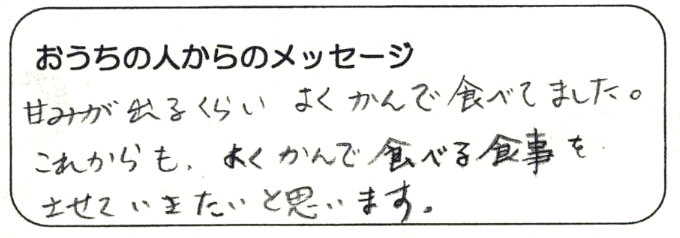 おうちの人からのメッセージ
甘みが出るくらい よくかんで食べてました。
これからも、よくかんで食べる食事を
させていきたいと思います。